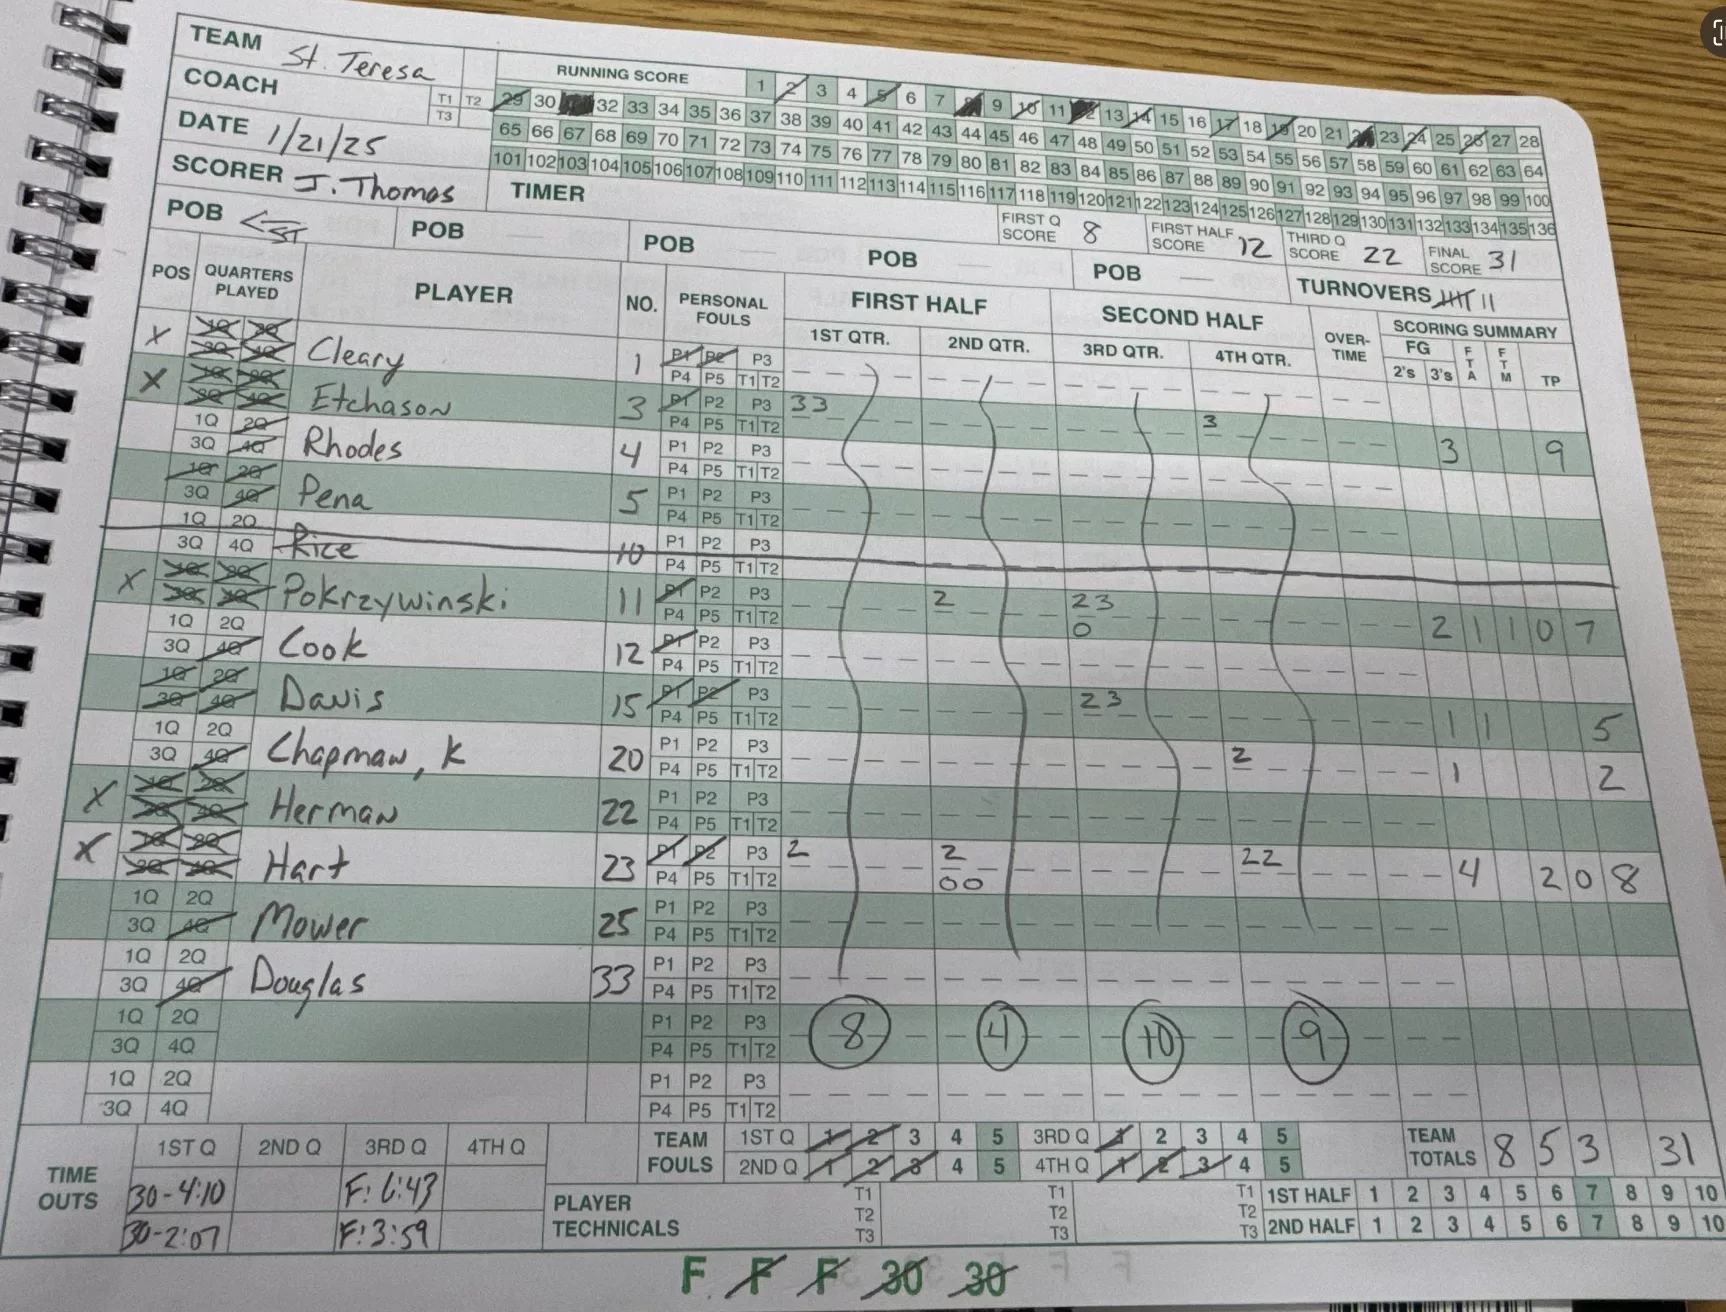 TEAM St. Teresa
COACH
T1 T2
T3
DATE 1/21/25
SCORER J. Thomas
TIMER
RUNNING SCORE 1 2 3 4 5 6 7 8 9 10 11 12 13 14 15 16 17 18 19 20 21 22 23 24 25 26 27 28
29 30 31 32 33 34 35 36 37 38 39 40 41 42 43 44 45 46 47 48 49 50 51 52 53 54 55 56 57 58 59 60 61 62 63 64
65 66 67 68 69 70 71 72 73 74 75 76 77 78 79 80 81 82 83 84 85 86 87 88 89 90 91 92 93 94 95 96 97 98 99 100
101 102 103 104 105 106 107 108 109 110 111 112 113 114 115 116 117 118 119 120 121 122 123 124 125 126 127 128 129 130 131 132 133 134 135 136
FIRST Q SCORE 8 FIRST HALF SCORE 12 THIRD Q SCORE 22 FINAL SCORE 31
POB ST POB POB POB POB TURNOVERS
POS QUARTERS PLAYED PLAYER NO. PERSONAL FOULS FIRST HALF SECOND HALF OVER-TIME SCORING SUMMARY
1ST QTR. 2ND QTR. 3RD QTR. 4TH QTR. FG FTA FTM TP
2's 3's
X 1Q 2Q Cleary 1 P1 P2 P3
3Q 4Q P4 P5 T1 T2
X 1Q 2Q Etchason 3 P1 P2 P3 33 3 3 9
3Q 4Q P4 P5 T1 T2
1Q 2Q Rhodes 4 P1 P2 P3
3Q 4Q P4 P5 T1 T2
1Q 2Q Pena 5 P1 P2 P3
3Q 4Q P4 P5 T1 T2
1Q 2Q Rice 10 P1 P2 P3
3Q 4Q P4 P5 T1 T2
X 1Q 2Q Pokrzywinski 11 P1 P2 P3 2 23 2 1 1 0 7
3Q 4Q P4 P5 T1 T2 0
1Q 2Q Cook 12 P1 P2 P3
3Q 4Q P4 P5 T1 T2
1Q 2Q Davis 15 P1 P2 P3 23 1 1 5
3Q 4Q P4 P5 T1 T2
1Q 2Q Chapman, K 20 P1 P2 P3 2 1 2
3Q 4Q P4 P5 T1 T2
X 1Q 2Q Herman 22 P1 P2 P3
3Q 4Q P4 P5 T1 T2
X 1Q 2Q Hart 23 P1 P2 P3 2 2 22 4 2 0 8
3Q 4Q P4 P5 T1 T2 00
1Q 2Q Mower 25 P1 P2 P3
3Q 4Q P4 P5 T1 T2
1Q 2Q Douglas 33 P1 P2 P3
3Q 4Q P4 P5 T1 T2
1Q 2Q P1 P2 P3 8 4 10 9
3Q 4Q P4 P5 T1 T2
1Q 2Q P1 P2 P3
3Q 4Q P4 P5 T1 T2
TIME OUTS 1ST Q 2ND Q 3RD Q 4TH Q
30-4:10 F: 6:43
30-2:07 F: 3:59
TEAM FOULS 1ST Q 1 2 3 4 5 3RD Q 1 2 3 4 5
2ND Q 1 2 3 4 5 4TH Q 1 2 3 4 5
TEAM TOTALS 8 5 3 31
PLAYER TECHNICALS T1 T1 T1 1ST HALF 1 2 3 4 5 6 7 8 9 10
T2 T2 T2
T3 T3 T3 2ND HALF 1 2 3 4 5 6 7 8 9 10
F F F 30 30